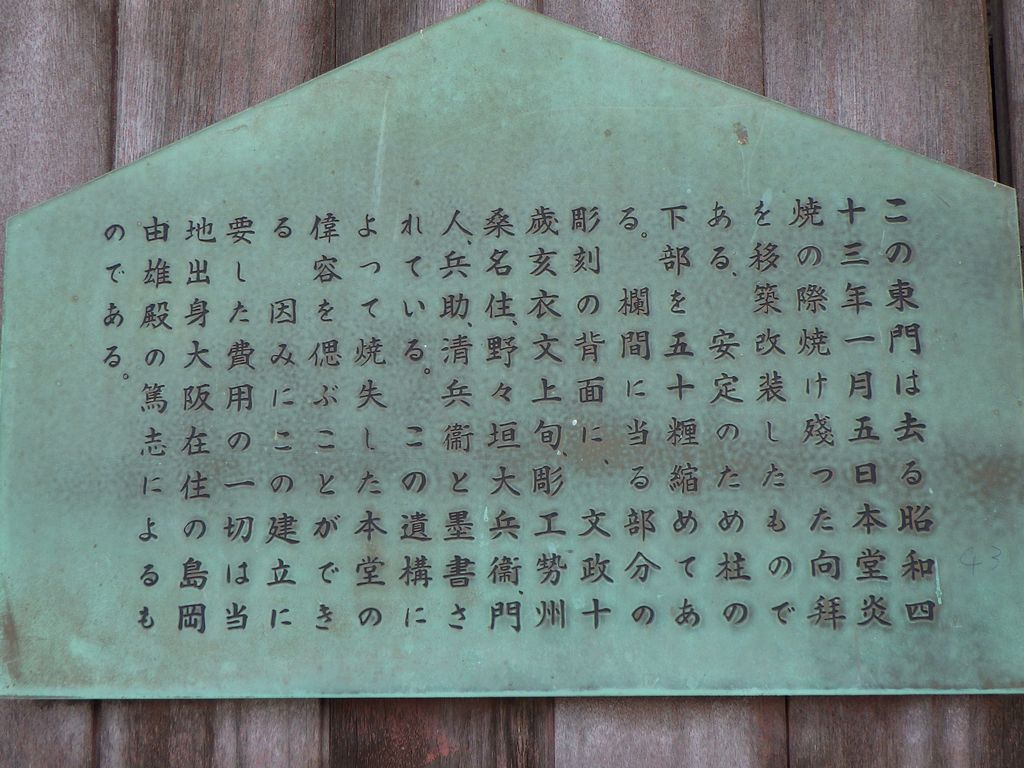 この東門は去る昭和四
十三年一月五日本堂炎
焼の際焼け残った向拝
を移築改装したもので
ある、安定のため柱の
下部を五十糎縮めてあ
る。欄間に当る部分の
彫刻の背面に、文政十
歳亥衣文上旬、彫工勢州
桑名住、野々垣大兵衞門
人、兵助、清兵衞と墨書さ
れている。この遺構に
よって焼失した本堂の
偉容を偲ぶことができ
る 因みにこの建立に
要した費用の一切は当
地出身大阪在住の島岡
由雄殿の篤志によるも
のである。
43